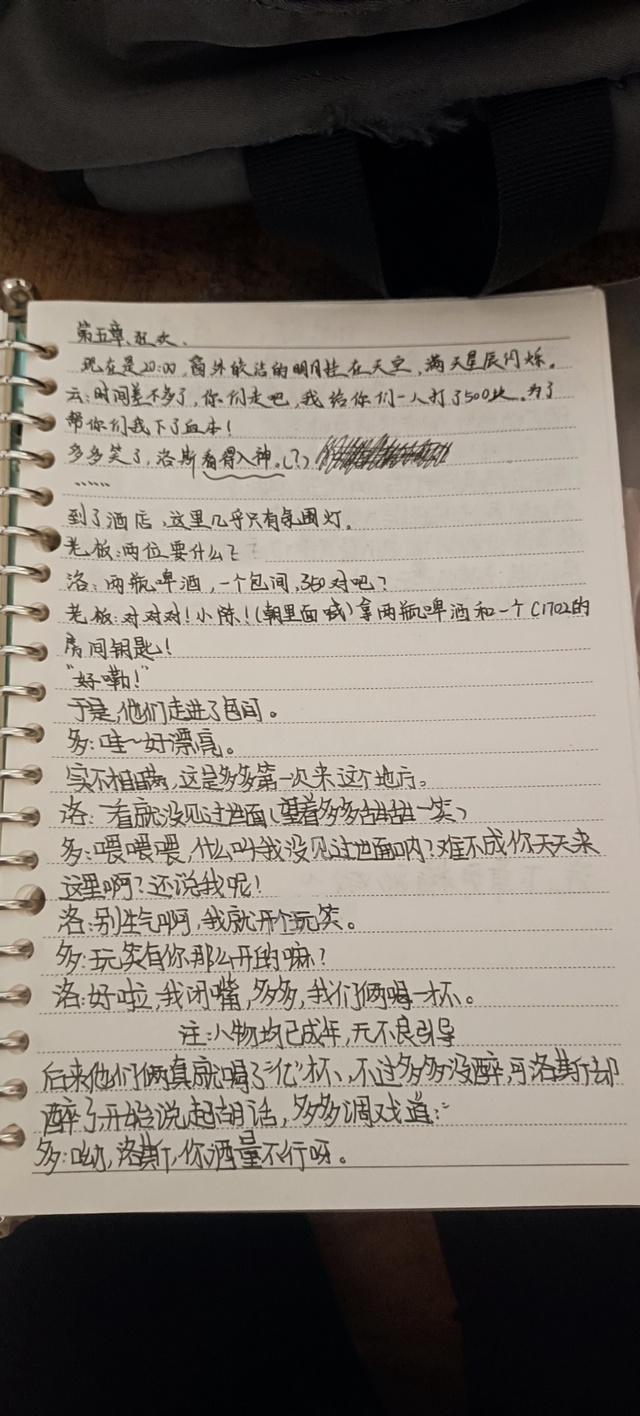 第五章、狂欢、
现在是20:00,窗外皎洁的明月挂在天空,满天星辰闪烁。
云:时间差不多了,你们走吧,我给你们一人打了500块,为了
帮你们我下了血本!
多多笑了,洛斯看得入神。(?)
……
到了酒店,这里几乎只有氛围灯。
老板:两位要什么?
洛:两瓶啤酒,一个包间,350对吧?
老板:对对对!小陈!(朝里面喊)拿两瓶啤酒和一个C1702的
房间钥匙!
"好嘞!"
于是,他们走进了包间。
多:哇~好漂亮。
实不相瞒,这是多多第一次来这个地方。
洛:一看就没见过世面(望着多多甜甜一笑)
多:喂喂喂,什么叫我没见过世面呐?难不成你天天来
这里啊?还说我呢!
洛:别生气啊,我就开个玩笑。
多:玩笑有你那么开的嘛?
洛:好啦,我闭嘴,多多,我们俩喝一杯。
注:人物均已成年,无不良引导
后来他们俩真就喝了"亿"杯、不过多多没醉,可洛斯却
醉了,开始说起胡话,多多调戏道:
多:呦,洛斯,你酒量不行呀。